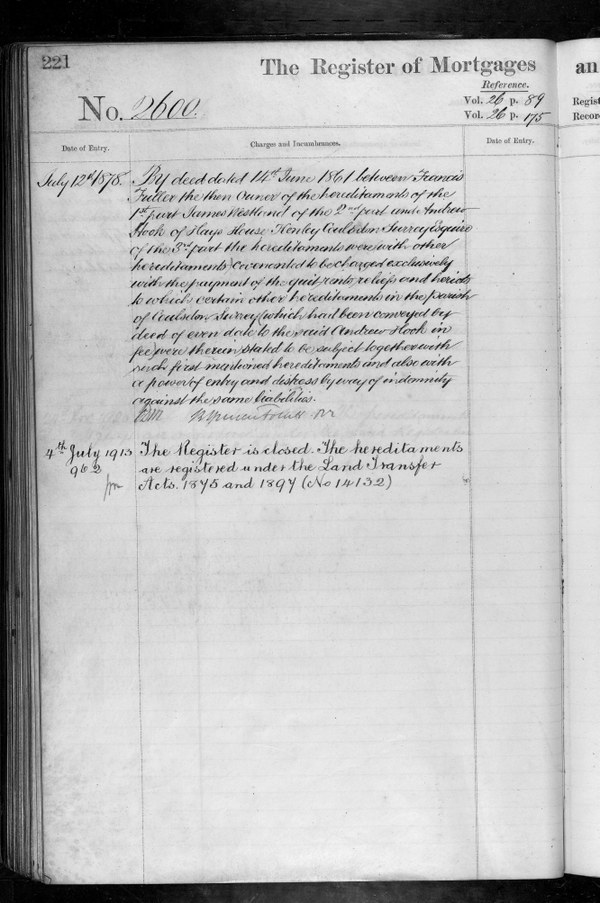 221
The Register of Mortgages
an
Reference.
No. 2600.
Vol. 26 p. 89
Regist
Vol. 26 p. 175
Recor
Date of Entry.
Charges and Incumbrances.
Date of Entry.
July 12th 1878.
By deed dated 14th June 1861 between Francis
Fuller the then Owner of the hereditaments of the
1st part James Westland of the 2nd part and Andrew
Hook of Hays House Kenley Coulsdon Surrey Esquire
of the 3rd part the hereditaments were with other
hereditaments covenanted to be charged exclusively
with the payment of the quit rents reliefs and heriots
to which certain other hereditaments in the parish
of Coulsdon Surrey (which had been conveyed by
deed of even date to the said Andrew Hook in
fee) were therein stated to be subject together with
such first mentioned hereditaments and also with
a power of entry and distress by way of indemnity
against the same liabilities.
4th July 1913
The Register is closed. The hereditaments
are registered under the Land Transfer
Acts. 1875 and 1897 (No 14132)